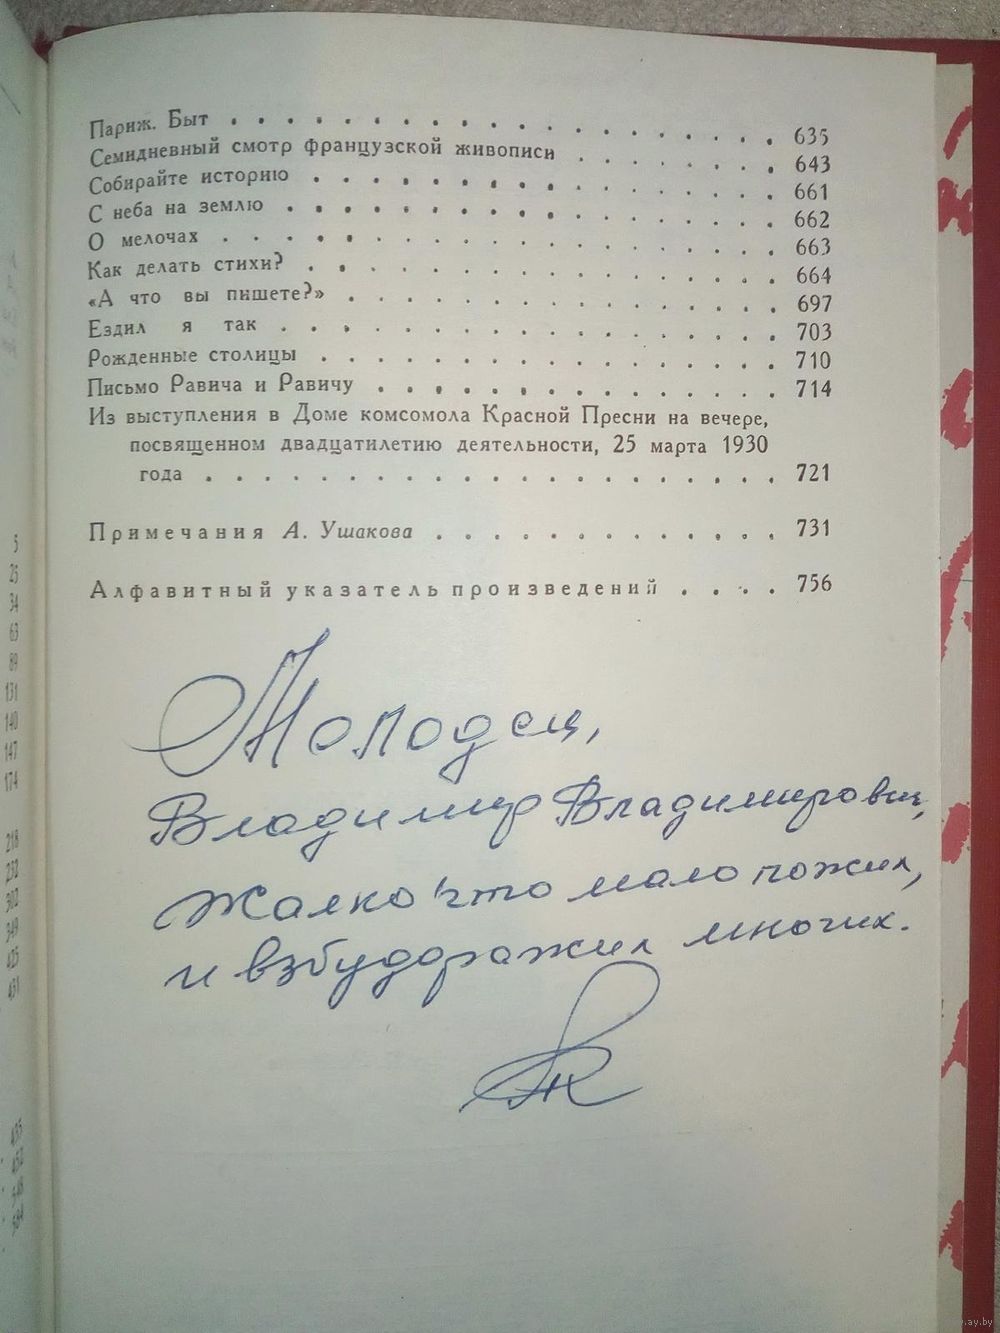 Париж. Быт . . . . . . . . . . . . . . . . . . . . 635
Семидневный смотр французской живописи . . . . . . . 643
Собирайте историю . . . . . . . . . . . . . . . . . 661
С неба на землю . . . . . . . . . . . . . . . . . . 662
О мелочах . . . . . . . . . . . . . . . . . . . . 663
Как делать стихи? . . . . . . . . . . . . . . . . . 664
«А что вы пишете?» . . . . . . . . . . . . . . . . 697
Ездил я так . . . . . . . . . . . . . . . . . . 703
Рожденные столицы . . . . . . . . . . . . . . . . . 710
Письмо Равича и Равичу . . . . . . . . . . . . . . 714
Из выступления в Доме комсомола Красной Пресни на вечере,
посвященном двадцатилетию деятельности, 25 марта 1930
года . . . . . . . . . . . . . . . . . . . . . 721
Примечания А. Ушакова . . . . . . . . . . . . . 731
Алфавитный указатель произведений . . . . 756
Молодец,
Владимир Владимирович,
Жалко что мало пожил,
и взбудоражил многих.
5
25
34
63
89
131
140
147
174
218
232
302
349
425
431
435
452
548
584
.ay.by